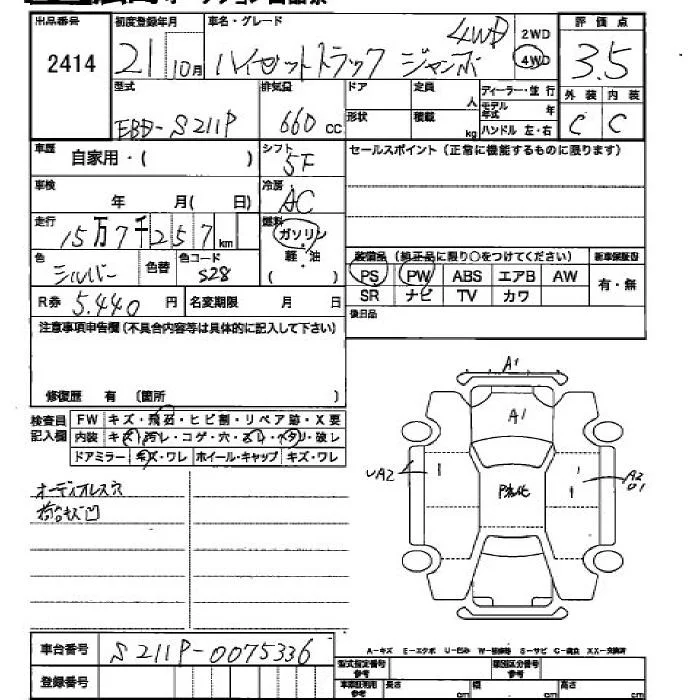 出品番号 初度登録年月 車名・グレード 2WD 4WD 評価点
2414 21 10月 ハイゼットトラック ジャンボ 4WD 3.5
型式 排気量 ドア 定員 人 ディーラー・並行 外装 内装
EBD-S211P 660 cc 形状 積載 kg モデル年式 年 C C
ハンドル 左・右
車歴 自家用・( ) シフト 5F セールスポイント(正常に機能するものに限ります)
車検 年 月( 日) 冷房 AC
走行 15万7千257km 燃料 ガソリン・軽油 ( )
色 シルバー 色替 色コード S28
装備品(純正品に限り○をつけてください) 新車保証書
PS PW ABS エアB AW 有・無
SR ナビ TV カワ
R券 5.440円 名変期限 月 日 後日品
注意事項申告欄(不具合内容等は具体的に記入して下さい)
修復歴 有 (箇所 )
検査員記入欄 FW キズ・飛石・ヒビ割・リペア跡・X要
内装 キズ・汚レ・コゲ・穴・スレ・ヘタリ・破レ
ドアミラー キズ・ワレ ホイール・キャップ キズ・ワレ
A1
A1
UA2
A2
P劣化
オーディオレス穴
A-キズ E-エクボ U-凹み W-補修跡 S-サビ C-腐食 XX-交換済
車台番号 S211P-0075336
登録番号
型式指定番号 参考 類別区分番号 参考
車庫証明用 参考 長さ cm 幅 cm 高さ cm